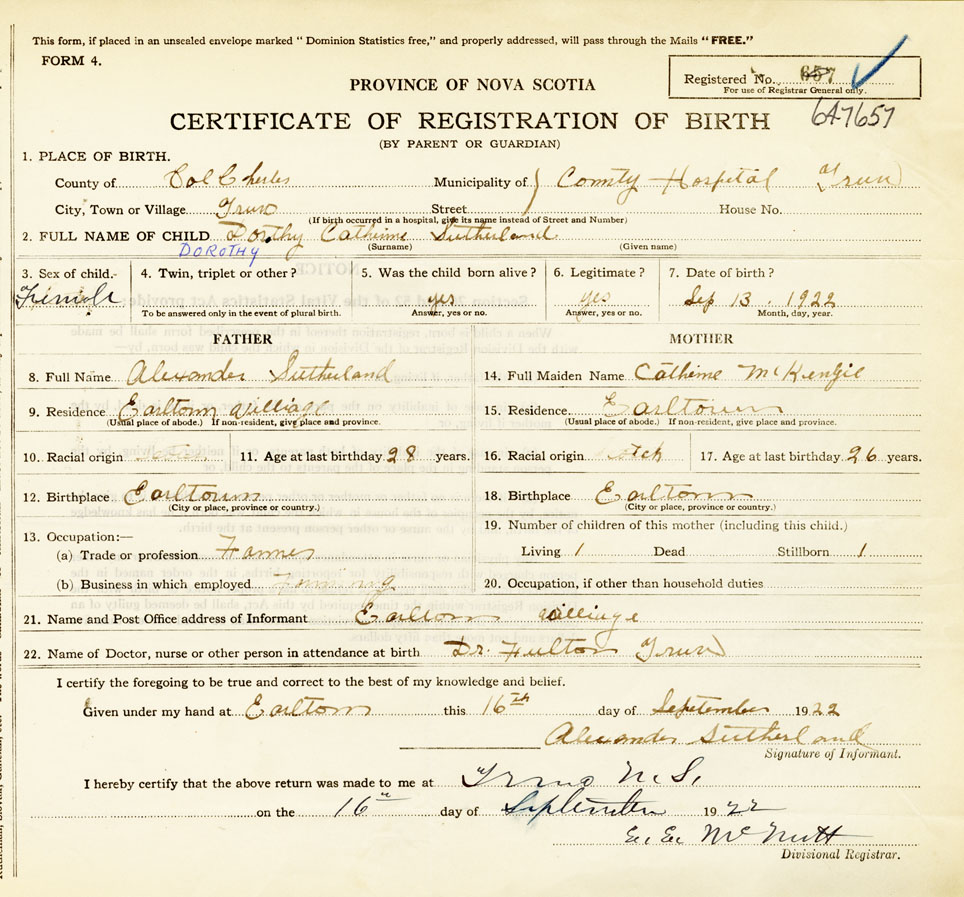 This form, if placed in an unsealed envelope marked "Dominion Statistics free," and properly addressed, will pass through the Mails "FREE."
FORM 4.
Registered No. 657
For use of Registrar General only.
PROVINCE OF NOVA SCOTIA
647657
CERTIFICATE OF REGISTRATION OF BIRTH
(BY PARENT OR GUARDIAN)
1. PLACE OF BIRTH.
County of Colcherles Municipality of County Hospital Truro
City, Town or Village Truro Street House No.
(If birth occurred in a hospital, give its name instead of Street and Number)
2. FULL NAME OF CHILD Dorthy Catherine Sutherland
DOROTHY (Surname) (Given name)
3. Sex of child.- 4. Twin, triplet or other? 5. Was the child born alive? 6. Legitimate? 7. Date of birth?
Female yes yes Sep 13. 1922
To be answered only in the event of plural birth. Answer, yes or no. Answer, yes or no. Month, day, year.
FATHER MOTHER
8. Full Name Alexander Sutherland 14. Full Maiden Name Catherine McKenzie
9. Residence Earltown Williage 15. Residence. Earltown
(Usual place of abode.) If non-resident, give place and province. (Usual place of abode.) If non-resident, give place and province.
10. Racial origin 11. Age at last birthday 28 years. 16. Racial origin 17. Age at last birthday 26 years.
12. Birthplace Earltown 18. Birthplace Earltown
(City or place, province or country.) (City or place, province or country.)
13. Occupation:— 19. Number of children of this mother (including this child.)
(a) Trade or profession Farmer Living 1 Dead Stillborn 1
(b) Business in which employed Farming 20. Occupation, if other than household duties
21. Name and Post Office address of Informant Earltown Willinge
22. Name of Doctor, nurse or other person in attendance at birth Dr. Fulton Truro
I certify the foregoing to be true and correct to the best of my knowledge and belief.
Given under my hand at Earltown this 16th day of September 1922
Alexander Sutherland
Signature of Informant.
I hereby certify that the above return was made to me at Truro N.S.
on the 16th day of September 1922
E. E. McNutt
Divisional Registrar.